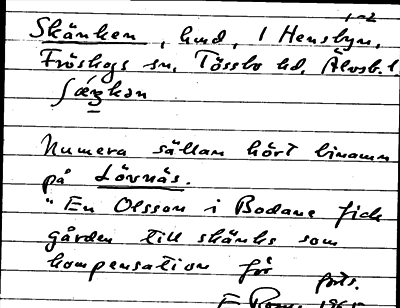 1-2
Skänken, hmd, 1 Hensbyn,
Fröskogs sn, Tössbo hd, Älvsb. l.
Numera sällan hört binamn
på Lövnäs.
"En Olsson i Bodane fick
gården till skänks som
kompensation för
forts.